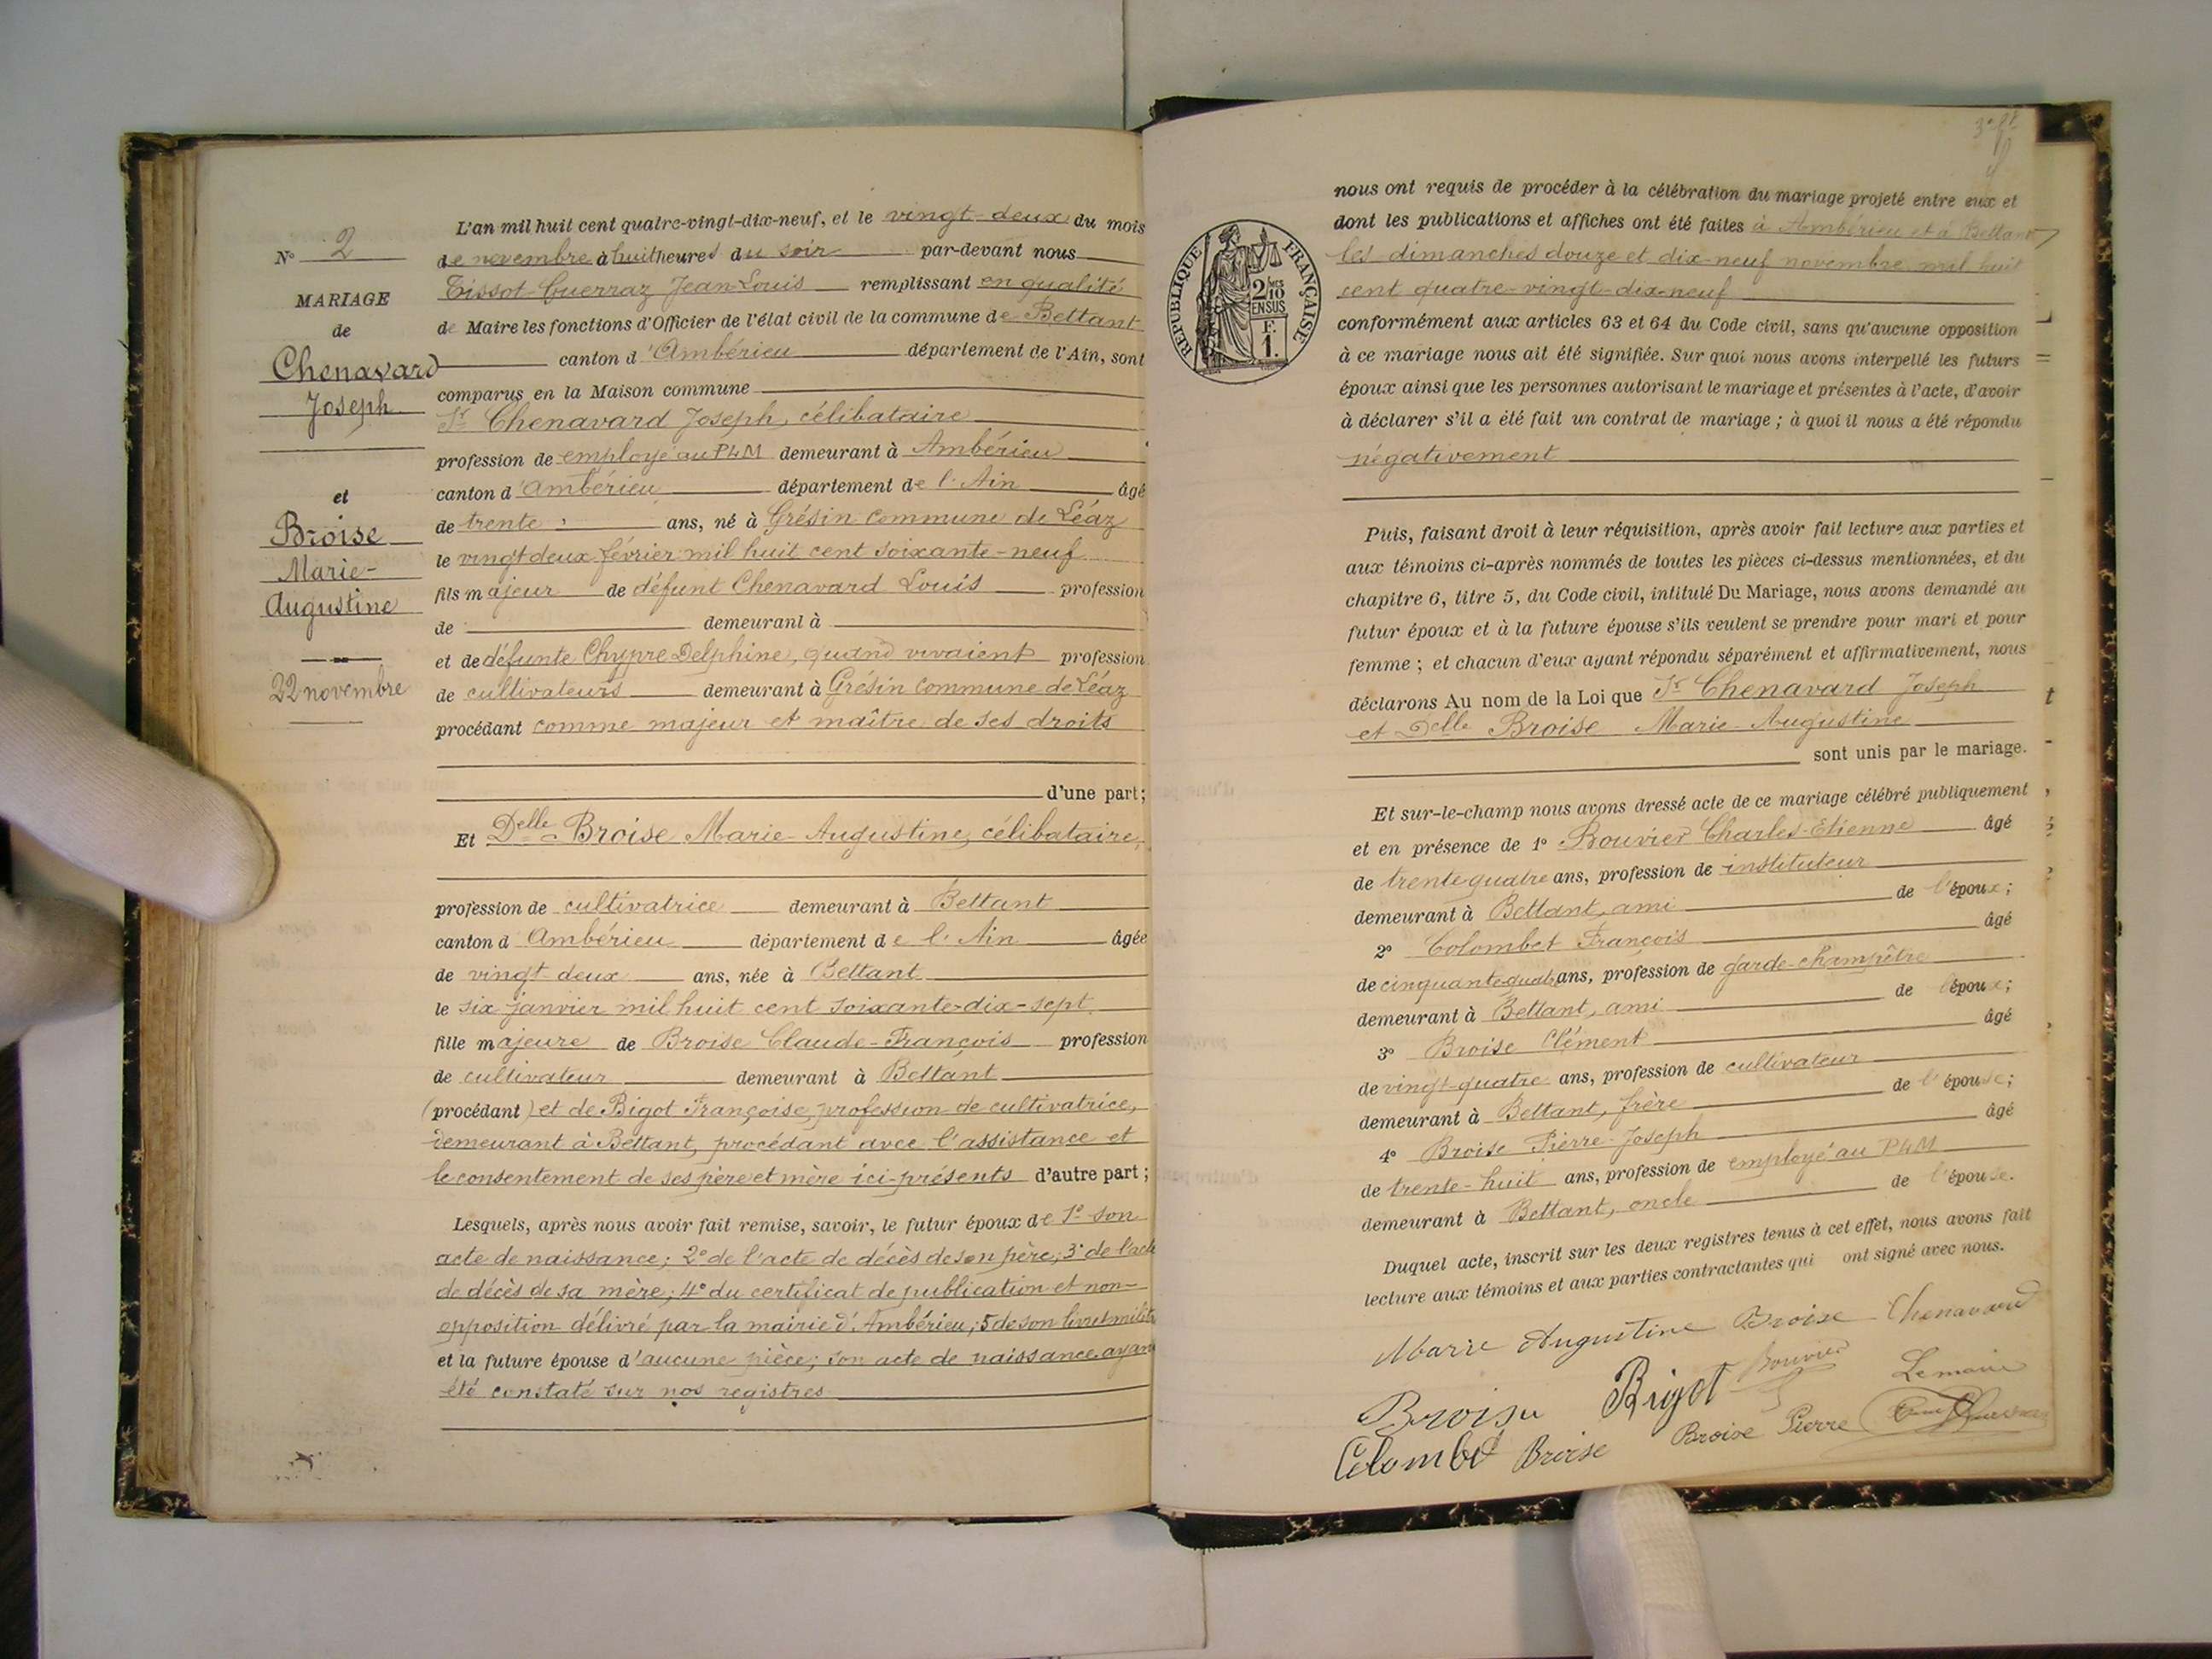 N° 2
MARIAGE
de
Chenavard
Joseph
et
Broise
Marie-
Augustine
22 novembre
L'an mil huit cent quatre-vingt-dix-neuf, et le vingt-deux du mois
de novembre à huit heures du soir par-devant nous
Tissot-Guerraz Jean-Louis remplissant en qualité
de Maire les fonctions d'Officier de l'état civil de la commune de Bettant
canton d'Ambérieu département de l'Ain, sont
comparus en la Maison commune
Sr Chenavard Joseph, célibataire
profession de employé au PLM demeurant à Ambérieu
canton d'Ambérieu département de l'Ain âgé
de trente ans, né à Grésin commune de Léaz
le vingt deux février mil huit cent soixante-neuf
fils majeur de défunt Chenavard Louis profession
de demeurant à
et de défunte Chypre Delphine, quand vivaient profession
de cultivateurs demeurant à Grésin commune de Léaz
procédant comme majeur et maître de ses droits
d'une part;
Et Delle Broise Marie-Augustine, célibataire,
profession de cultivatrice demeurant à Bettant
canton d'Ambérieu département de l'Ain âgée
de vingt-deux ans, née à Bettant
le six janvier mil huit cent soixante-dix-sept
fille majeure de Broise Claude-François profession
de cultivateur demeurant à Bettant
(procédant) et de Bigot Françoise, profession de cultivatrice,
demeurant à Bettant, procédant avec l'assistance et
le consentement de ses père et mère ici-présents d'autre part;
Lesquels, après nous avoir fait remise, savoir, le futur époux de 1° son
acte de naissance; 2° de l'acte de décès de son père; 3° de l'acte
de décès de sa mère; 4° du certificat de publication et non-
opposition délivré par la mairie d'Ambérieu; 5 de son livret milit
et la future épouse d'aucune pièce; son acte de naissance ayant
été constaté sur nos registres
RÉPUBLIQUE FRANÇAISE
2/10
EN SUS
F.
1.
nous ont requis de procéder à la célébration du mariage projeté entre eux et
dont les publications et affiches ont été faites à Ambérieu et à Bettant
les dimanches douze et dix-neuf novembre mil huit
cent quatre-vingt-dix-neuf
conformément aux articles 63 et 64 du Code civil, sans qu'aucune opposition
à ce mariage nous ait été signifiée. Sur quoi nous avons interpellé les futurs
époux ainsi que les personnes autorisant le mariage et présentes à l'acte, d'avoir
à déclarer s'il a été fait un contrat de mariage; à quoi il nous a été répondu
négativement
Puis, faisant droit à leur réquisition, après avoir fait lecture aux parties et
aux témoins ci-après nommés de toutes les pièces ci-dessus mentionnées, et du
chapitre 6, titre 5, du Code civil, intitulé Du Mariage, nous avons demandé au
futur époux et à la future épouse s'ils veulent se prendre pour mari et pour
femme; et chacun d'eux ayant répondu séparément et affirmativement, nous
déclarons Au nom de la Loi que Sr Chenavard Joseph
et Delle Broise Marie-Augustine
sont unis par le mariage.
Et sur-le-champ nous avons dressé acte de ce mariage célébré publiquement
et en présence de 1° Bouvier Charles-Etienne âgé
de trente quatre ans, profession de instituteur
demeurant à Bettant, ami de l'époux;
2° Colombet François âgé
de cinquante-quatre ans, profession de garde-champêtre
demeurant à Bettant, ami de l'époux;
3° Broise Clément âgé
de vingt-quatre ans, profession de cultivateur
demeurant à Bettant, frère de l'épouse;
4° Broise Pierre-Joseph âgé
de trente-huit ans, profession de employé au PLM
demeurant à Bettant, oncle de l'épouse.
Duquel acte, inscrit sur les deux registres tenus à cet effet, nous avons fait
lecture aux témoins et aux parties contractantes qui ont signé avec nous.
Marie Augustine Broise Chenavard
Broise Bigot Bouvier Le maire
Colombet Broise Broise Pierre